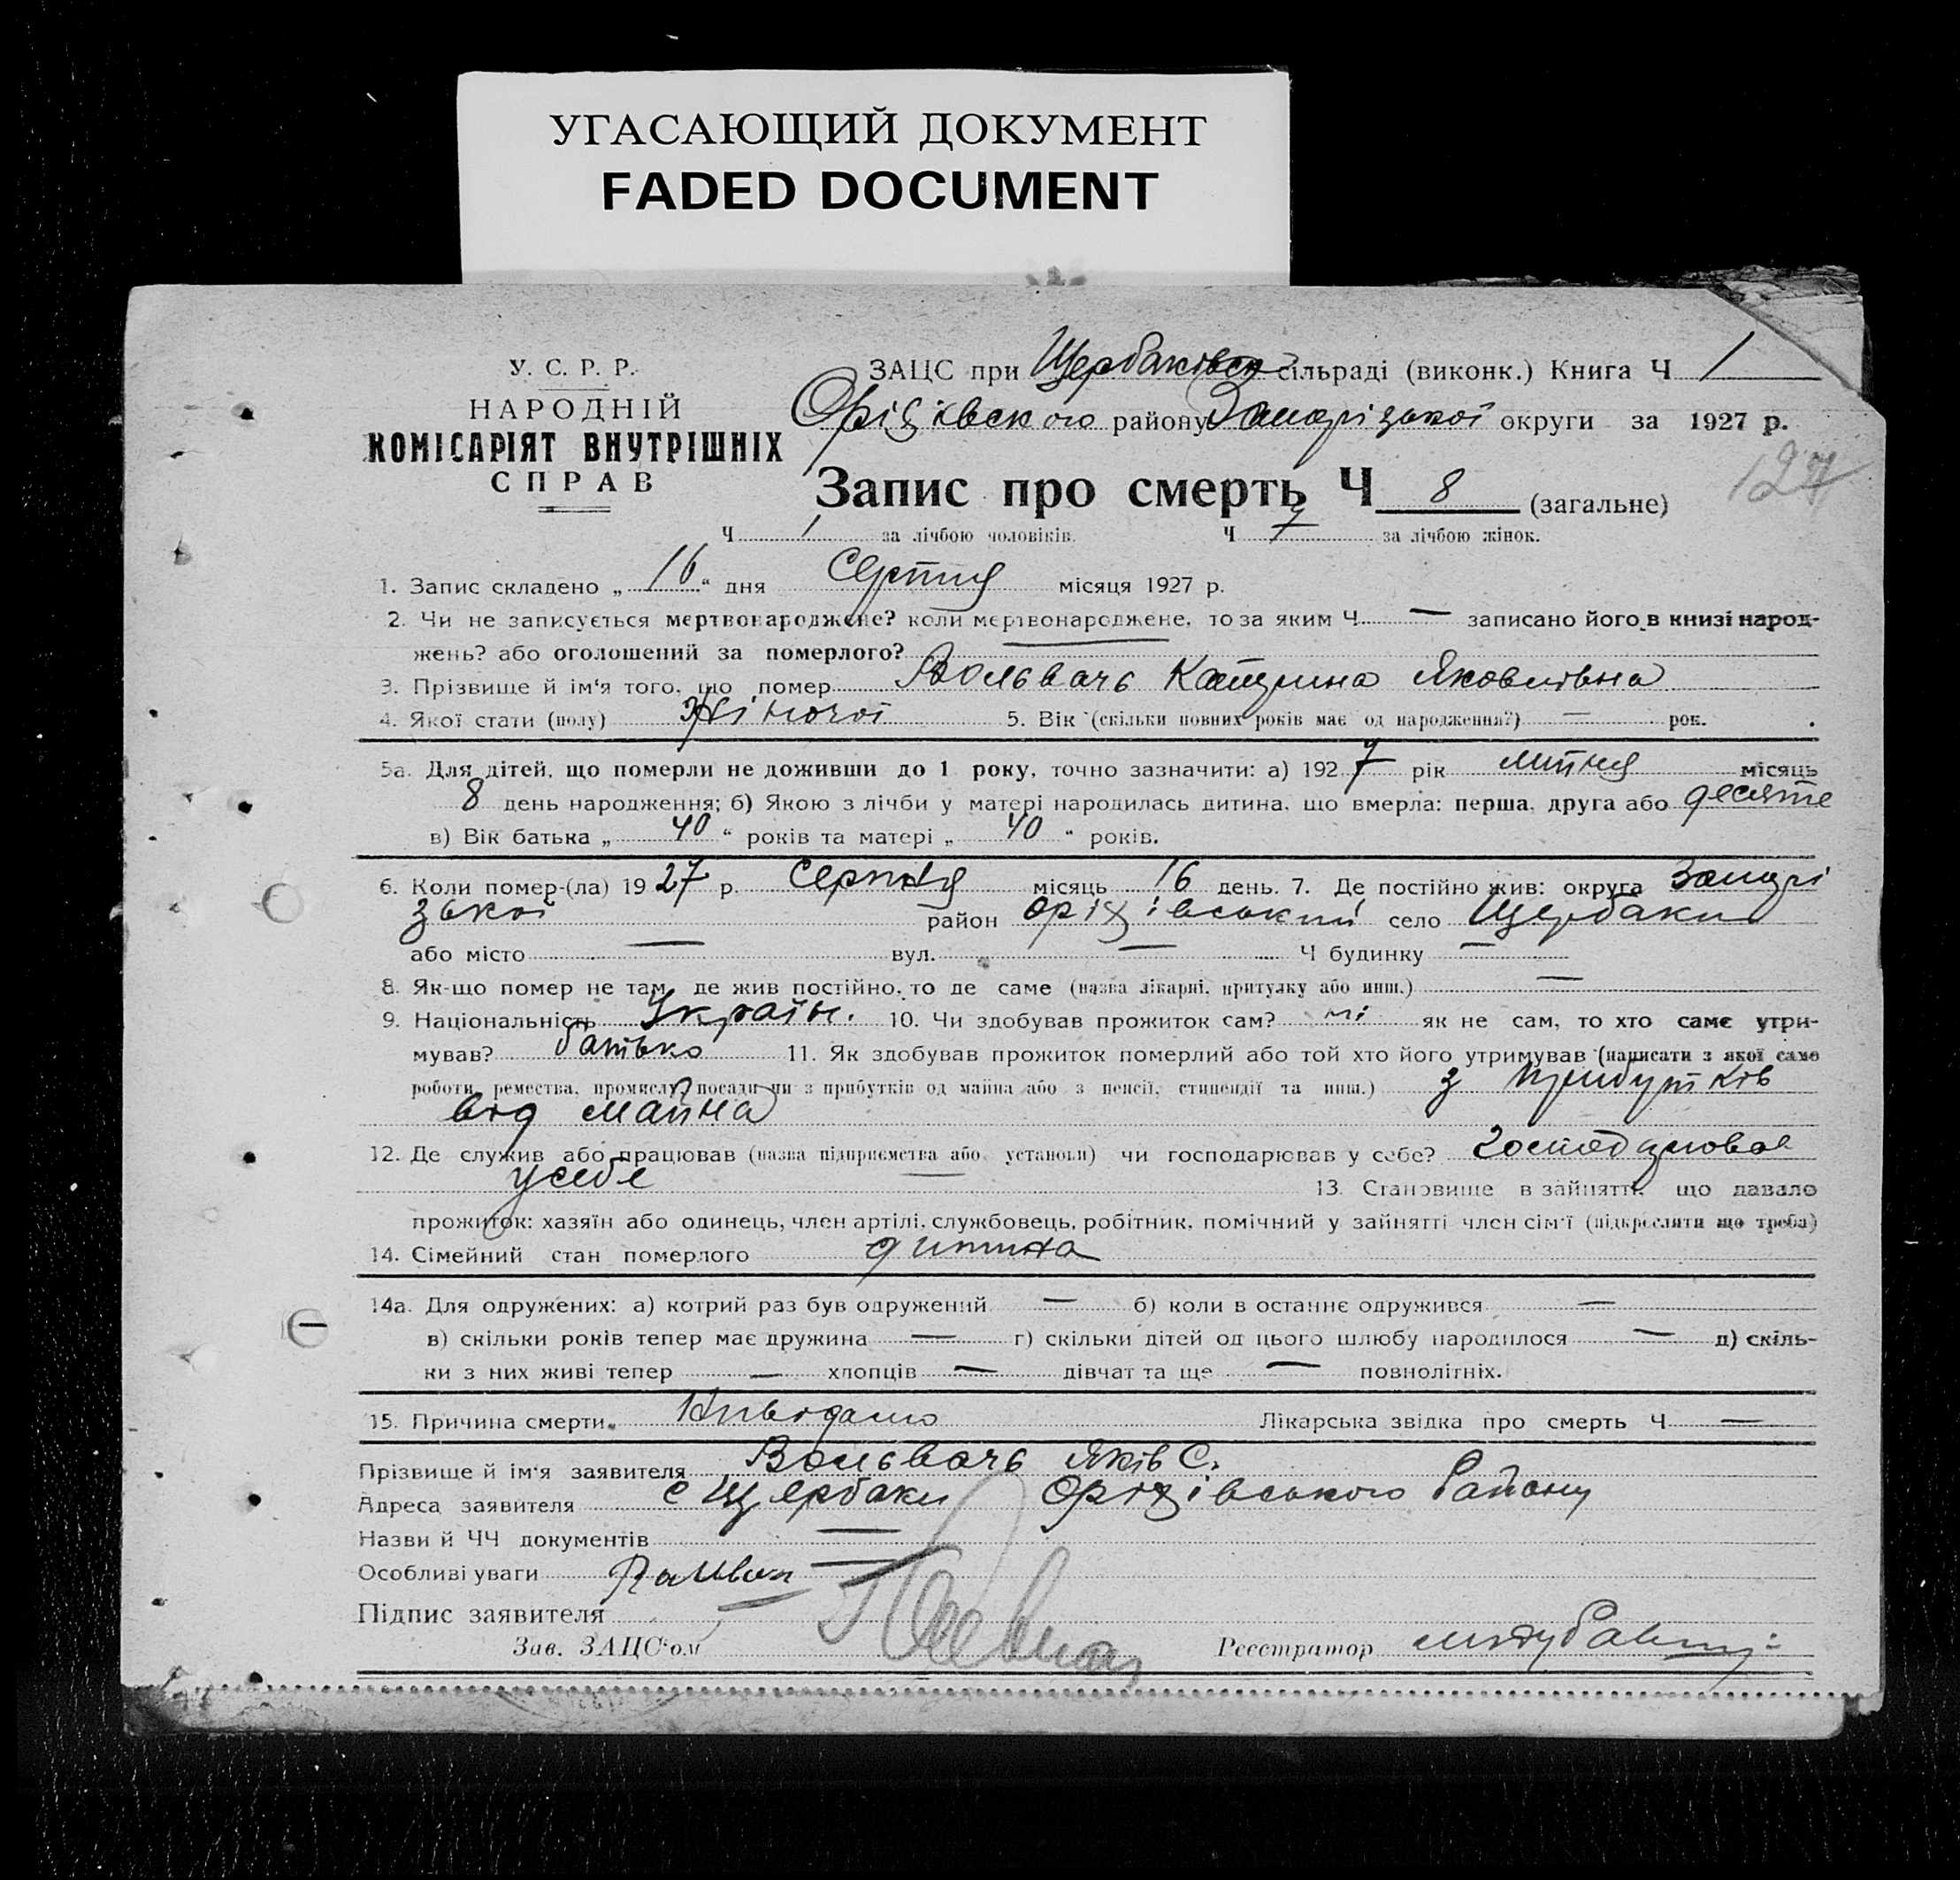 УГАСАЮЩИЙ ДОКУМЕНТ
FADED DOCUMENT
У. С. Р. Р.
НАРОДНІЙ
КОМІСАРІЯТ ВНУТРІШНІХ
СПРАВ
ЗАЦС при Щербаківск сільраді (виконк.) Книга Ч 1
Оріхівского району Запорізької округи за 1927 р.
127
Запис про смерть Ч 8 (загальне)
Ч 1 за лічбою чоловіків. Ч 7 за лічбою жінок.
1. Запис складено „ 16 “ дня Серпня місяця 1927 р.
2. Чи не записується мертвонароджене? коли мертвонароджене, то за яким Ч — записано його в книзі народ-
жень? або оголошений за померлого?
3. Прізвище й ім‘я того, що помер Вольвачь Катерина Яковлівна
4. Якої стати (полу) Жіночої 5. Вік (скільки повних років має од народження?) — рок.
5а. Для дітей, що померли не доживши до 1 року, точно зазначити: а) 1927 рік липня місяць
8 день народження; б) Якою з лічби у матері народилась дитина, що вмерла: перша, друга або десяте
в) Вік батька „ 40 “ років та матері „ 40 “ років.
6. Коли помер-(ла) 1927 р. Серпня місяць 16 день. 7. Де постійно жив: округа Запорі
зької район Оріхівський село Щербаки
або місто — вул. — Ч будинку —
8. Як-що помер не там, де жив постійно, то де саме (назва лікарні, притулку або инш.) —
9. Національність Україн. 10. Чи здобував прожиток сам? ні як не сам, то хто саме утри-
мував? батько 11. Як здобував прожиток померлий або той хто його утримував (написати з якої само
роботи, ремества, промислу, посади чи з прибутків од майна або з пенсії, стипендії та инш.) з прибутків
від майна
12. Де служив або працював (назва підприємства або установи) чи господарював у себе? господарював
усебе 13. Становище в зайнятті, що давало
прожиток: хазяїн або одинець, член артілі, службовець, робітник, помічний у зайнятті член сім‘ї (підкреслити що треба)
14. Сімейний стан померлого дитина
14а. Для одружених: а) котрий раз був одружений — б) коли в останнє одружився —
в) скільки років тепер має дружина — г) скільки дітей од цього шлюбу народилося — д) скіль-
ки з них живі тепер — хлопців — дівчат та ще — повнолітніх.
15. Причина смерти. Нивідомо Лікарська звідка про смерть Ч —
Прізвище й ім‘я заявителя Вольвачь Яків С.
Адреса заявителя с Щербаки Оріхівського Району
Назви й ЧЧ документів —
Особливі уваги
Підпис заявителя
Зав. ЗАЦС‘ом Реєстратор